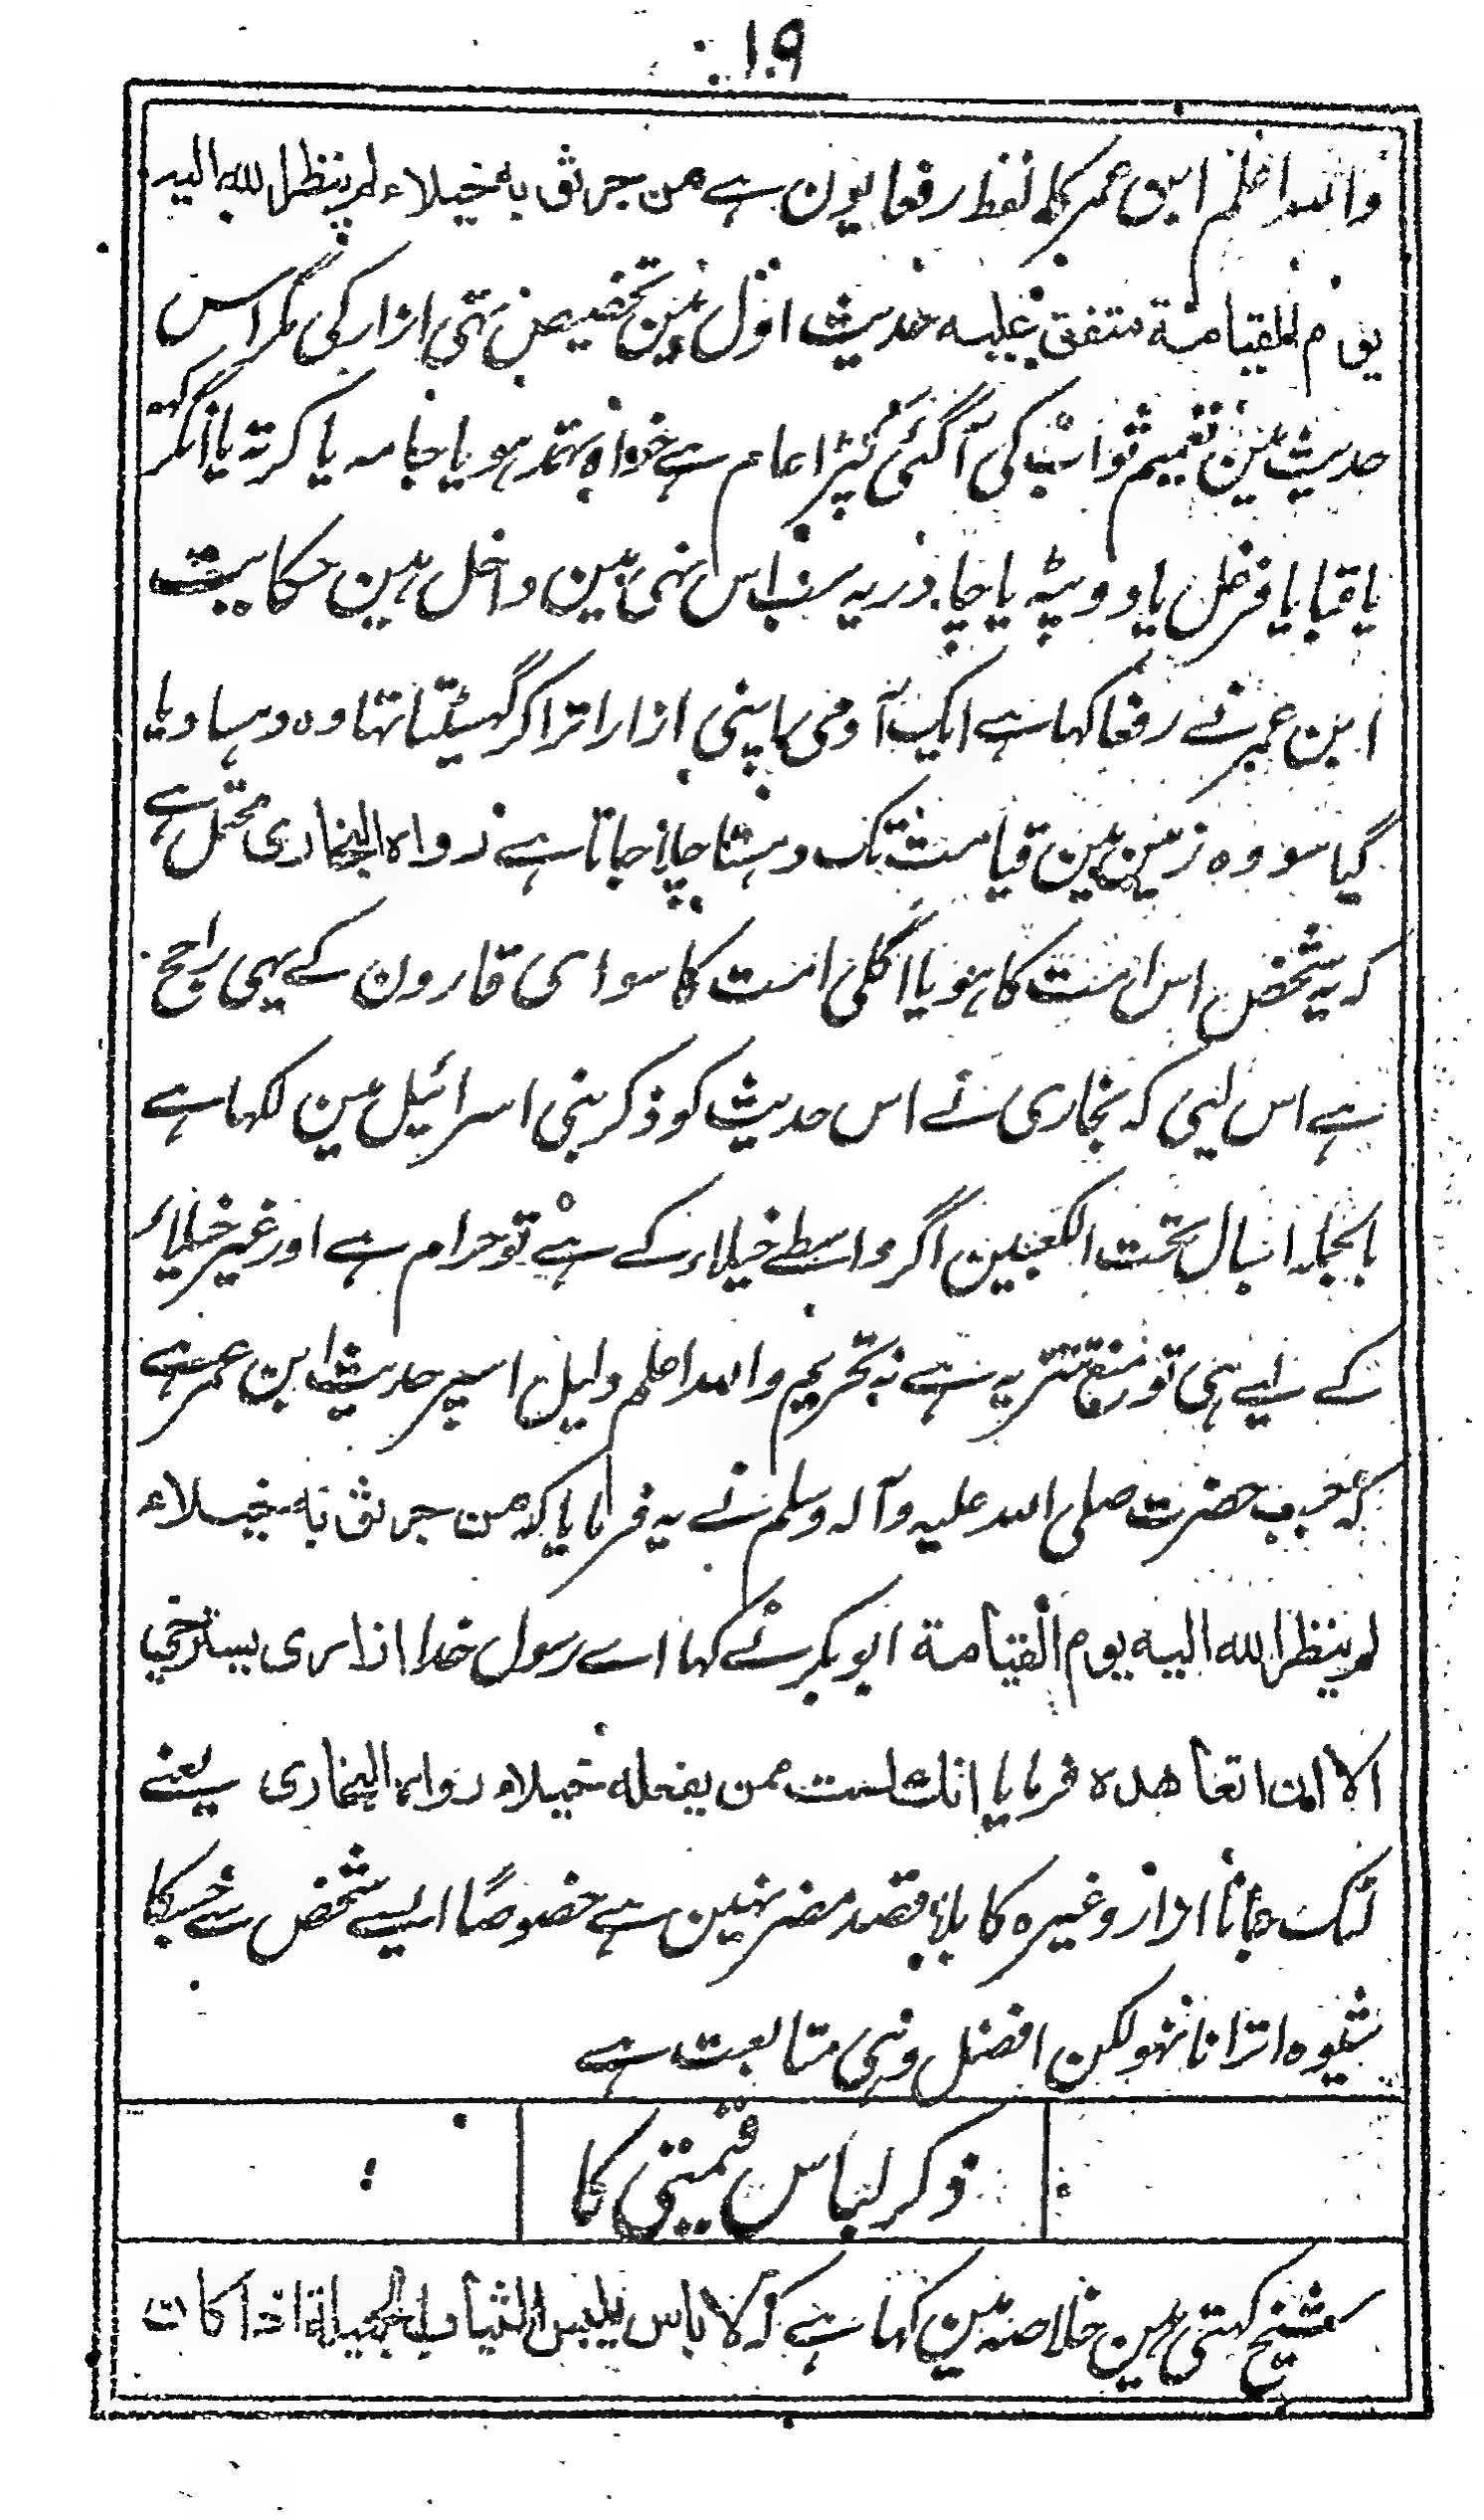 ۱۹
واللہ اعلم ابن عمر کا لفظ رفعا یون ہے من جر ثوبہ خیلاء لم ینظر اللہ الیہ
یوم القیامة متفق علیہ حدیث اول مین تخصیص تہی ازار کی مگر اس
حدیث مین تعمیم ثواب کی آگئی کپڑا عام ہے خواہ تہمد ہو یا جامہ یا کرتہ یا انگرکہہ
یا قبا یا فرغل یا دوپٹہ یا چادر یہ سب اس نہی مین داخل ہین حکایت
ابن عمر نے رفعا کہا ہے ایک آدمی اپنی ازار اتراکر گہسیٹتا تہا وہ دہسا دیا
گیا سو وہ زمین مین قیامت تک دہستا چلا جاتا ہے رواہ البخاری محتمل ہے
کہ یہ شخص اس امت کا ہو یا اگلی امت کا سوای قارون کے یہی راجح
ہے اس لیی کہ بخاری نے اس حدیث کو ذکر بنی اسرائیل مین لکہا ہے
بالجملہ اسبال تحت الکعبین اگر واسطے خیلاء کے ہے تو حرام ہے اور غیر خیلاء
کے لیے ہی تو منع تنزیہ ہے نہ تحریم واللہ اعلم دلیل اسپر حدیث ابن عمر ہے
کہ جب حضرت صلی اللہ علیہ وآلہ وسلم نے یہ فرمایا کہ من جر ثوبہ خیلاء
لم ینظر اللہ الیہ یوم القیامة ابو بکر نے کہا اے رسول خدا ازاری یسترخی
الا ان اتعاهده فرمایا انک لست ممن یفعله خیلاء رواہ البخاری یعنے
لٹک جانا ازار وغیرہ کا بلا قصد مضر نہین ہے خصوصًا ایسے شخص سے جسکا
شیوہ اترانا نہو لکن افضل وہی متابعت ہے
ذکر لباس قیمتی کا
شیخ کہتی ہین خلاصہ مین کہا ہے کہ لا باس بلبس الثیاب الجمیلة اذا کانت